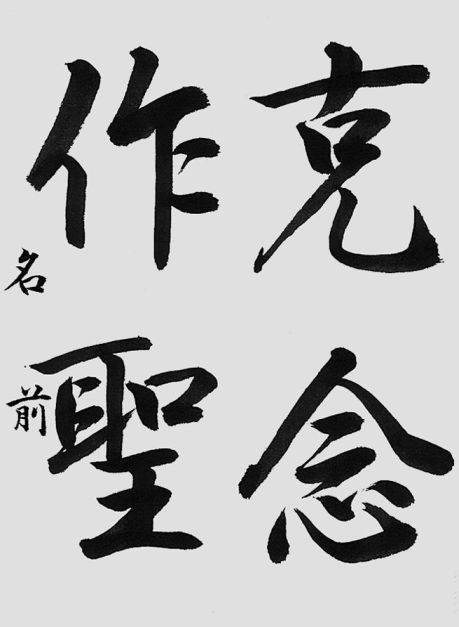 克念
作聖
名前